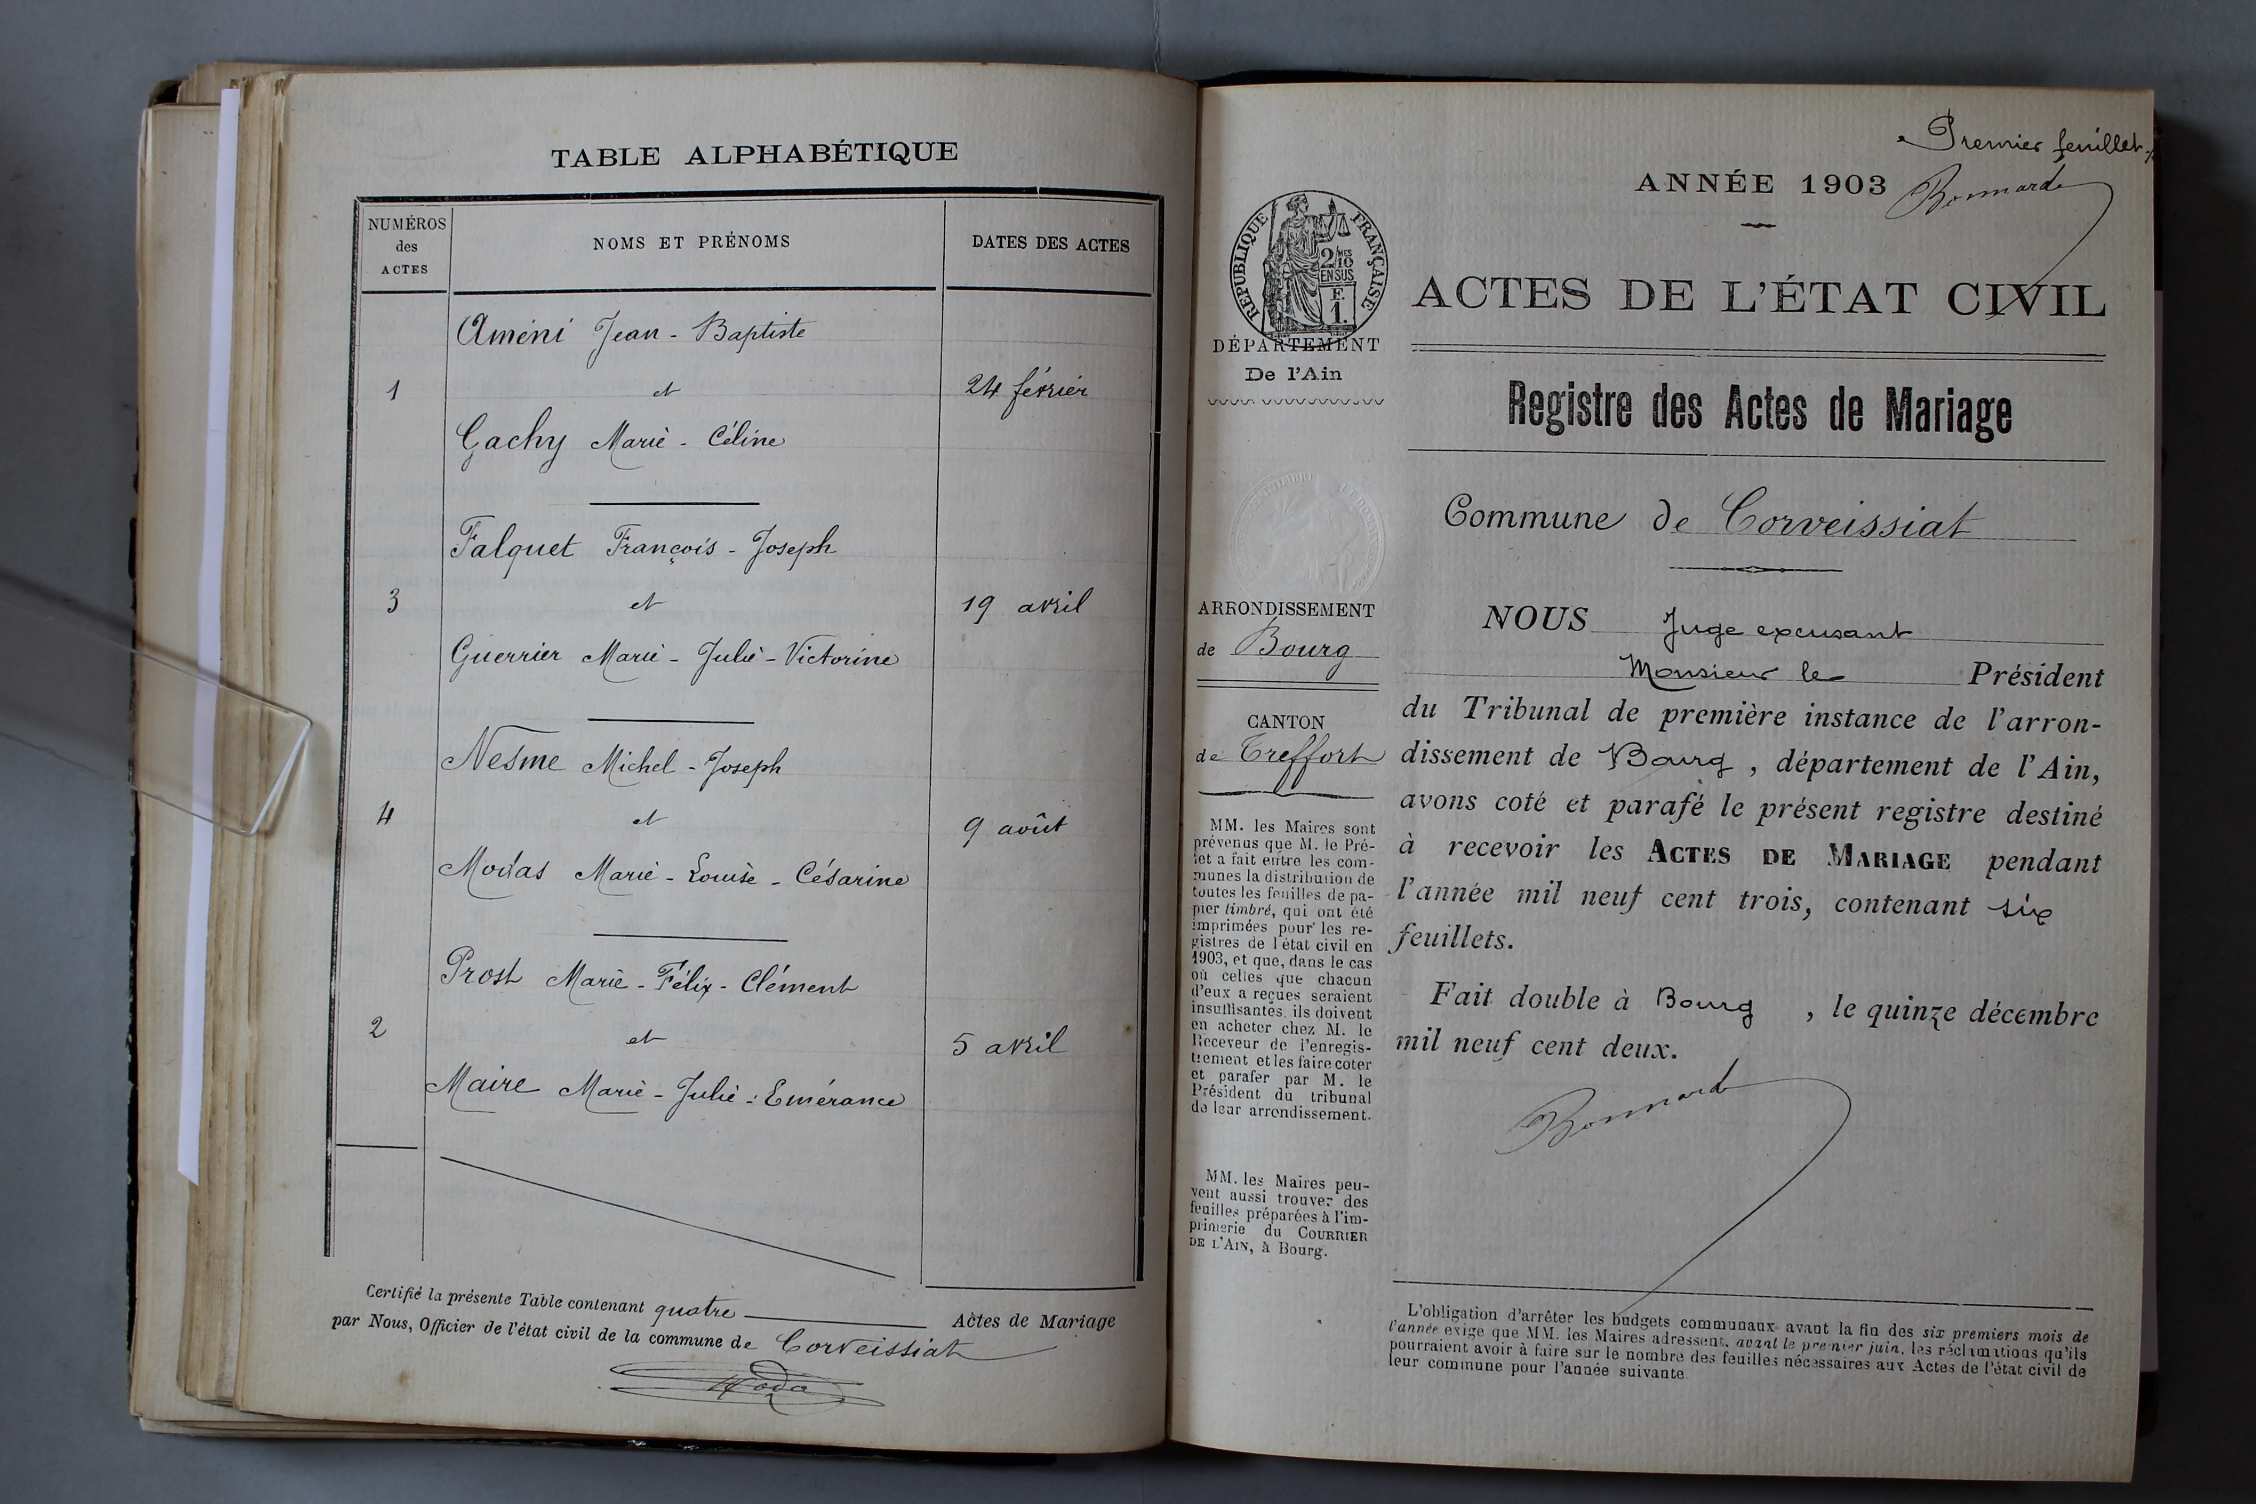 TABLE ALPHABÉTIQUE
NUMÉROS
des
ACTES
NOMS ET PRÉNOMS
DATES DES ACTES
Améni Jean - Baptiste
1 et 24 février
Gachy Marie - Céline
Falquet François - Joseph
3 et 19 avril
Guerrier Marie - Julie - Victorine
Nesme Michel - Joseph
4 et 9 août
Modas Marie - Louise - Césarine
Prost Marie - Félix - Clément
2 et 5 avril
Maire Marie - Julie - Emérance
Certifié la présente Table contenant quatre Actes de Mariage
par Nous, Officier de l'état civil de la commune de Corveissiat
Premier feuillet
Bonnard
ANNÉE 1903
RÉPUBLIQUE FRANÇAISE
2/10MES
EN SUS
F.
1.
ACTES DE L'ÉTAT CIVIL
DÉPARTEMENT
De l'Ain
Registre des Actes de Mariage
Commune de Corveissiat
ARRONDISSEMENT
de Bourg
CANTON
de Treffort
MM. les Maires sont
prévenus que M. le Pré-
fet a fait entre les com-
munes la distribution de
toutes les feuilles de pa-
pier timbré, qui ont été
imprimées pour les re-
gistres de l'état civil en
1903, et que, dans le cas
où celles que chacun
d'eux a reçues seraient
insuffisantes, ils doivent
en acheter chez M. le
Receveur de l'enregis-
trement et les faire coter
et parafer par M. le
Président du tribunal
de leur arrondissement.
MM. les Maires peu-
vent aussi trouver des
feuilles préparées à l'im-
primerie du COURRIER
DE L'AIN, à Bourg.
NOUS Juge excusant
Monsieur le Président
du Tribunal de première instance de l'arron-
dissement de Bourg, département de l'Ain,
avons coté et parafé le présent registre destiné
à recevoir les ACTES DE MARIAGE pendant
l'année mil neuf cent trois, contenant six
feuillets.
Fait double à Bourg, le quinze décembre
mil neuf cent deux.
Bonnard
L'obligation d'arrêter les budgets communaux avant la fin des six premiers mois de
l'année exige que MM. les Maires adressent, avant le premier juin, les réclamations qu'ils
pourraient avoir à faire sur le nombre des feuilles nécessaires aux Actes de l'état civil de
leur commune pour l'année suivante